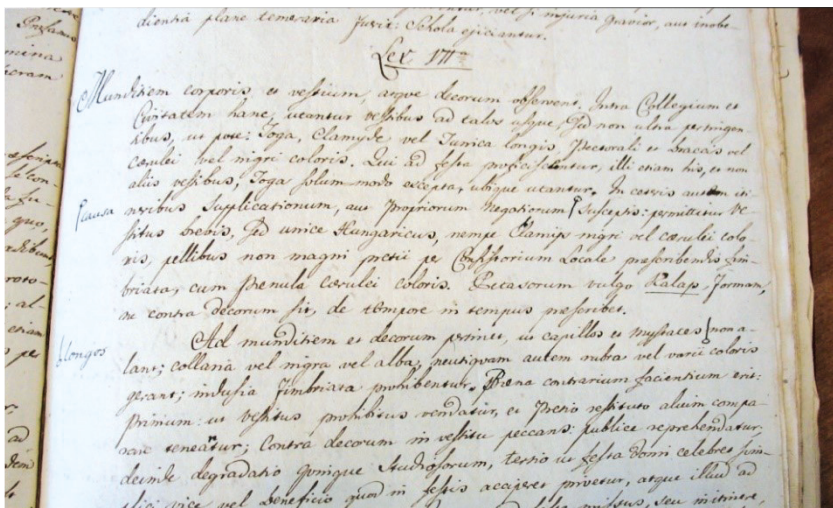 dientia plane temeraria fuerit: Schola ejiciantur.
Lex VII
Munditiem corporis, et vestium, atque decorum observent. Intra Collegium et
Civitatem hanc, utantur vestibus ad talos usque, sed non ultra pertingen-
tibus, ut pote: Toga, Clamyde vel Tunica longis, Pectorali et bracis vel
cærulei vel nigri coloris. Qui ad festa proficiscuntur, illi etiam his, et non
aliis vestibus, Toga solummodo excepta, ubique utantur. In cæteris autem iti-
causa neribus Supplicationum, aut propriorum Negotiorum susceptis: permittitur Ve-
stitus brevis, sed unice Hungaricus, nempe Clamys nigri vel cærulei colo-
ris, pellibus non magni pretii per Consistorium Locale præscribendis fim-
briata, cum Penula cærulei coloris. Petasorum vulgo Kalap, formam,
ne contra decorum sit, de tempore in tempus præscribet.
Ad munditiem et decorum pertinet, ut capillos et mystaces non a-
longos lant; collaria vel nigra vel alba, neutiquam autem rubra vel varii coloris
gerant; indusia fimbriata prohibentur. Pœna contrarium facientium erit:
Primum: ut vestitus prohibitus vendatur, et Pretio restituto alium compa-
rare teneantur; Contra decorum in vestitu peccans: publice reprehendatur,
deinde degradatio quinque Studiosorum, tertio ut festa domi celebret sim-
plici vice vel beneficio quod in festis acciperet privetur, atque illud ad
missus, seu in itinere,